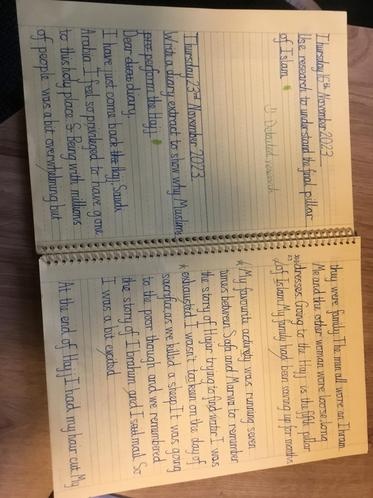 Thursday 16th November 2023
Use research to understand the final pillar
of Islam.
Detailed research
Thursday 23rd November 2023
Write a diary extract to show why Muslims
perform the Hajj
Dear diary,
I have just come back Saudi
Arabia. I feel so privileged to have gone
to this holy place. Being with millions
of people was a bit overwhelming but
they were family. The men all wore an Ihram.
Me and the other woman wore loose, long
dresses. Going to the Hajj is the fifth pillar
of Islam. My family had been saving up for months.
My favourite activity was running seven
times between Safa and Marwa to remember
the story of Hagar trying to find water. I was
exhausted. I wasn't too keen on the day of
sacrifice as we killed a sheep. It was going
to the poor though and we remembered
the story of Ibrahim and Ismail. So
I was a bit excited
At the end of Hajj I had my hair cut. My